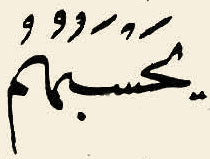 يَحْسَبُهُمُ